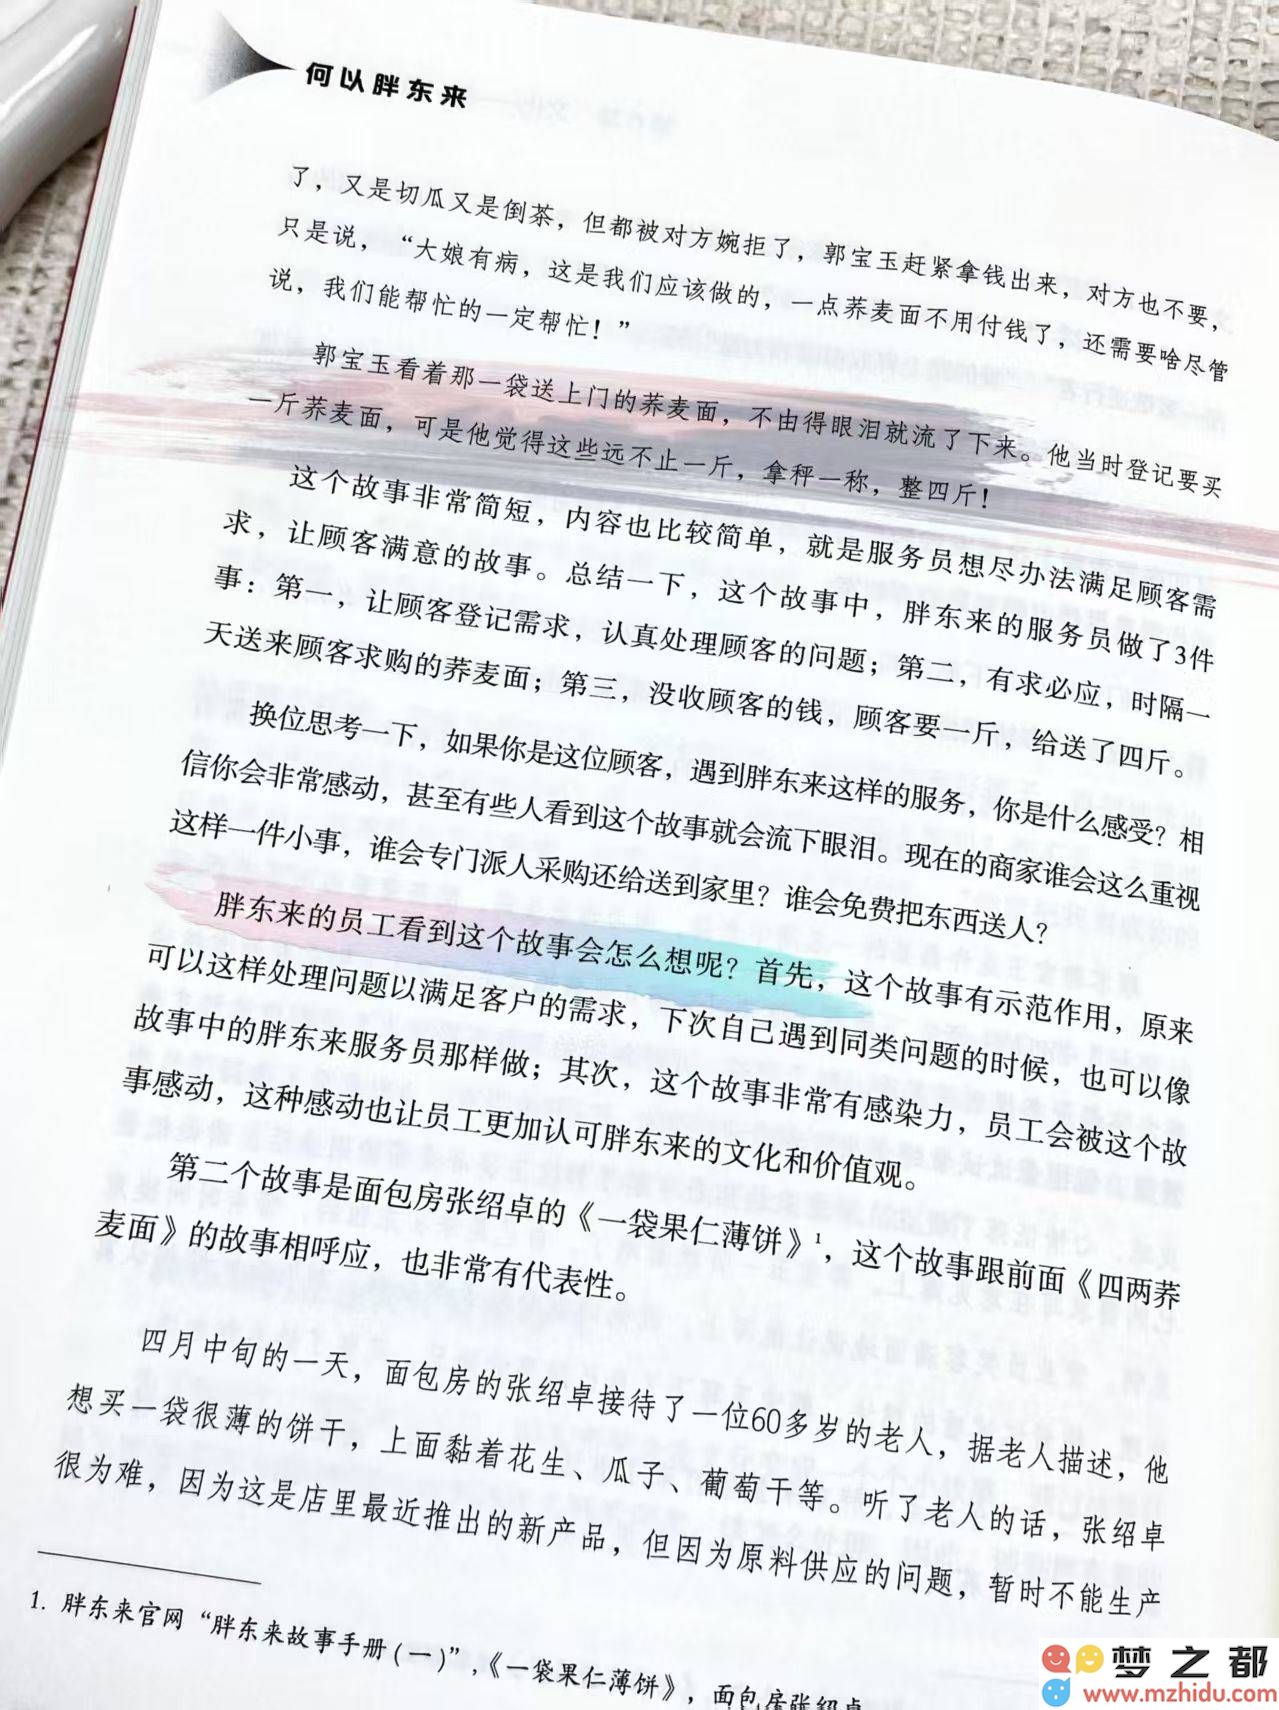 何以胖东来
了，又是切瓜又是倒茶，但都被对方婉拒了，郭宝玉赶紧拿钱出来，对方也不要，
只是说，“大娘有病，这是我们应该做的，一点荞麦面不用付钱了，还需要啥尽管
说，我们能帮忙的一定帮忙！”
郭宝玉看着那一袋送上门的荞麦面，不由得眼泪就流了下来。他当时登记要买
一斤荞麦面，可是他觉得这些远不止一斤，拿秤一称，整四斤！
这个故事非常简短，内容也比较简单，就是服务员想尽办法满足顾客需
求，让顾客满意的故事。总结一下，这个故事中，胖东来的服务员做了3件
事：第一，让顾客登记需求，认真处理顾客的问题；第二，有求必应，时隔一
天送来顾客求购的荞麦面；第三，没收顾客的钱，顾客要一斤，给送了四斤。
换位思考一下，如果你是这位顾客，遇到胖东来这样的服务，你是什么感受？相
信你会非常感动，甚至有些人看到这个故事就会流下眼泪。现在的商家谁会这么重视
这样一件小事，谁会专门派人采购还给送到家里？谁会免费把东西送人？
胖东来的员工看到这个故事会怎么想呢？首先，这个故事有示范作用，原来
可以这样处理问题以满足客户的需求，下次自己遇到同类问题的时候，也可以像
故事中的胖东来服务员那样做；其次，这个故事非常有感染力，员工会被这个故
事感动，这种感动也让员工更加认可胖东来的文化和价值观。
第二个故事是面包房张绍卓的《一袋果仁薄饼》1，这个故事跟前面《四两荞
麦面》的故事相呼应，也非常有代表性。
四月中旬的一天，面包房的张绍卓接待了一位60多岁的老人，据老人描述，他
想买一袋很薄的饼干，上面黏着花生、瓜子、葡萄干等。听了老人的话，张绍卓
很为难，因为这是店里最近推出的新产品，但因为原料供应的问题，暂时不能生产
1. 胖东来官网“胖东来故事手册(一)”，《一袋果仁薄饼》，面包房张绍卓
梦之都
www.mzhidu.com